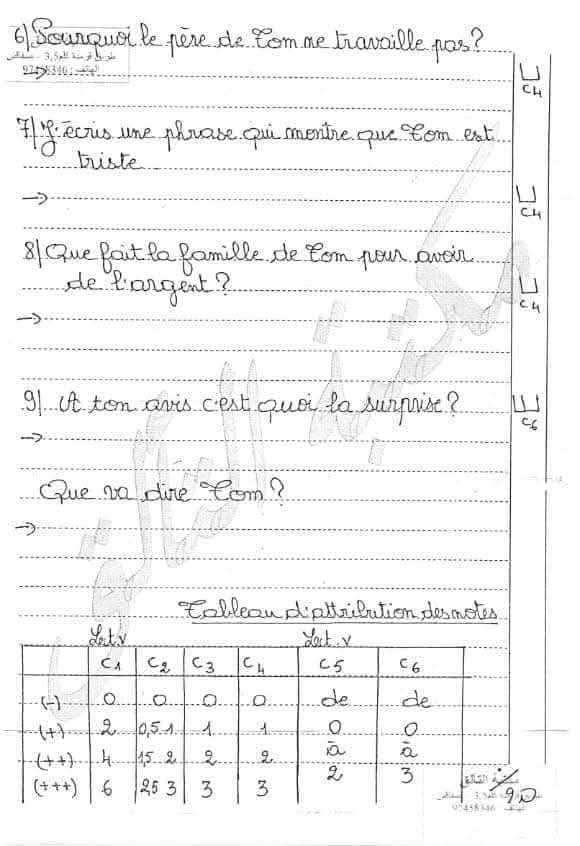 6) Pourquoi le père de Tom ne travaille pas?
97458346
C4
7) J'écris une phrase qui montre que Tom est
triste
C4
8) Que fait la famille de Tom pour avoir
de l'argent?
C4
9) A ton avis c'est quoi la surprise?
C6
Que va dire Tom?
Tableau d'attribution des notes
Lect.v Lect.v
C1 C2 C3 C4 C5 C6
(-) 0 0 0 0 de de
(+) 2 0,5 1 1 1 0 0
(++) 4 1,5 2 2 2 à à
(+++) 6 25 3 3 3 2 3
مكتبة التألق
97458346